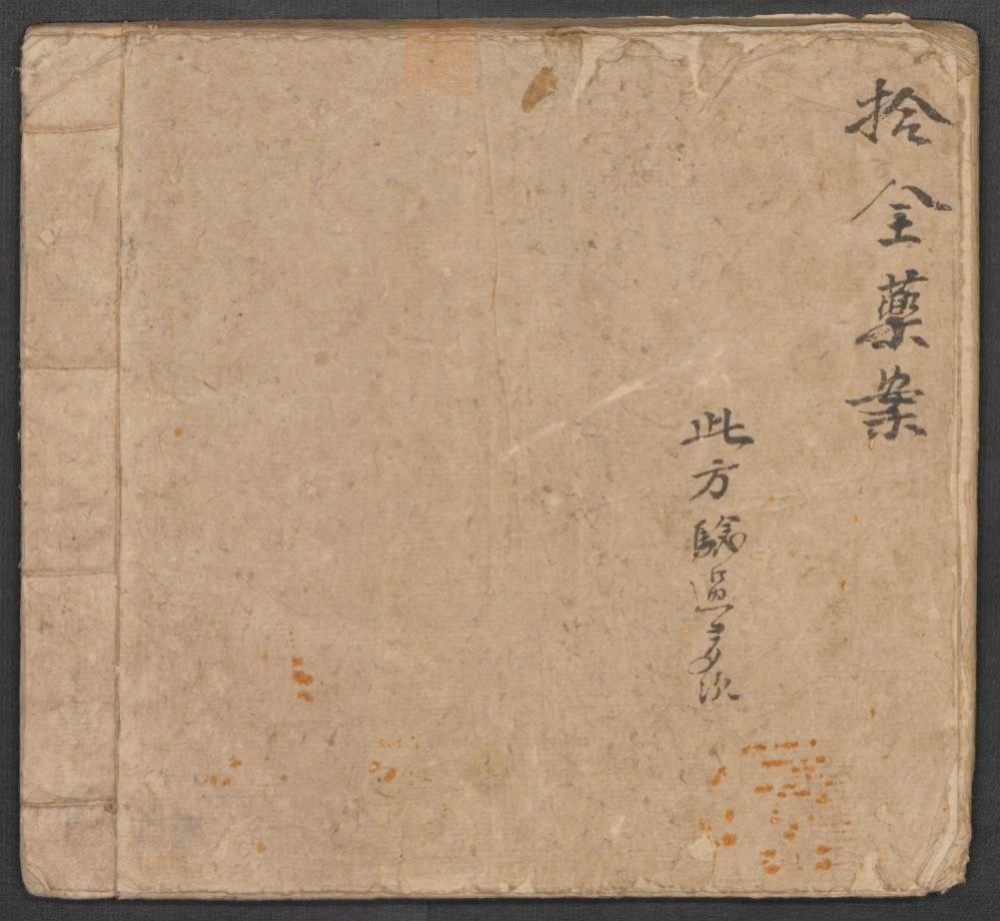 拾全藥案
此方驗過多次